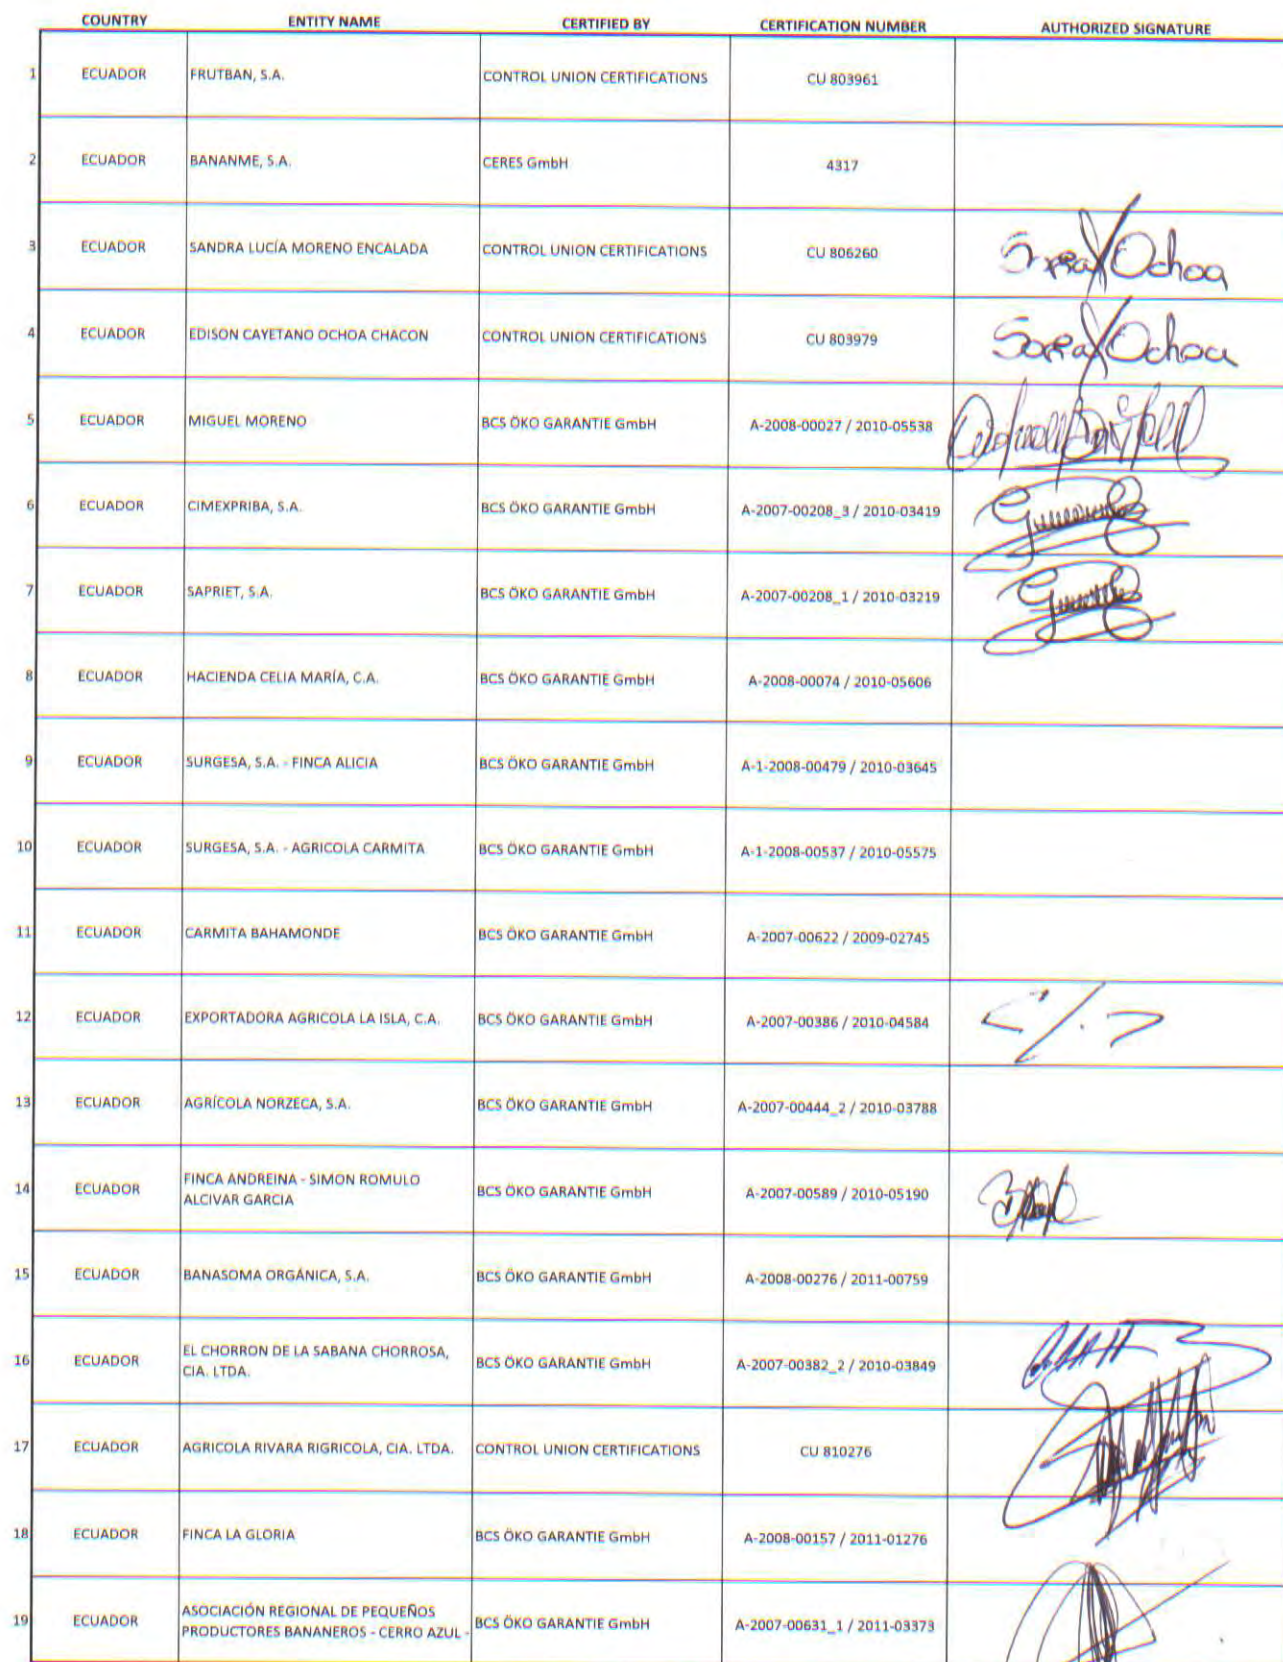 COUNTRY ENTITY NAME CERTIFIED BY CERTIFICATION NUMBER AUTHORIZED SIGNATURE
1 ECUADOR FRUTBAN, S.A. CONTROL UNION CERTIFICATIONS CU 803961
2 ECUADOR BANANME, S.A. CERES GmbH 4317
3 ECUADOR SANDRA LUCÍA MORENO ENCALADA CONTROL UNION CERTIFICATIONS CU 806260 Ochoa
4 ECUADOR EDISON CAYETANO OCHOA CHACON CONTROL UNION CERTIFICATIONS CU 803979 Ochoa
5 ECUADOR MIGUEL MORENO BCS ÖKO GARANTIE GmbH A-2008-00027 / 2010-05538
6 ECUADOR CIMEXPRIBA, S.A. BCS ÖKO GARANTIE GmbH A-2007-00208_3 / 2010-03419
7 ECUADOR SAPRIET, S.A. BCS ÖKO GARANTIE GmbH A-2007-00208_1 / 2010-03219
8 ECUADOR HACIENDA CELIA MARÍA, C.A. BCS ÖKO GARANTIE GmbH A-2008-00074 / 2010-05606
9 ECUADOR SURGESA, S.A. - FINCA ALICIA BCS ÖKO GARANTIE GmbH A-1-2008-00479 / 2010-03645
10 ECUADOR SURGESA, S.A. - AGRICOLA CARMITA BCS ÖKO GARANTIE GmbH A-1-2008-00537 / 2010-05575
11 ECUADOR CARMITA BAHAMONDE BCS ÖKO GARANTIE GmbH A-2007-00622 / 2009-02745
12 ECUADOR EXPORTADORA AGRICOLA LA ISLA, C.A. BCS ÖKO GARANTIE GmbH A-2007-00386 / 2010-04584
13 ECUADOR AGRÍCOLA NORZECA, S.A. BCS ÖKO GARANTIE GmbH A-2007-00444_2 / 2010-03788
14 ECUADOR FINCA ANDREINA - SIMON ROMULO
ALCIVAR GARCIA BCS ÖKO GARANTIE GmbH A-2007-00589 / 2010-05190
15 ECUADOR BANASOMA ORGÁNICA, S.A. BCS ÖKO GARANTIE GmbH A-2008-00276 / 2011-00759
16 ECUADOR EL CHORRON DE LA SABANA CHORROSA,
CIA. LTDA. BCS ÖKO GARANTIE GmbH A-2007-00382_2 / 2010-03849
17 ECUADOR AGRICOLA RIVARA RIGRICOLA, CIA. LTDA. CONTROL UNION CERTIFICATIONS CU 810276
18 ECUADOR FINCA LA GLORIA BCS ÖKO GARANTIE GmbH A-2008-00157 / 2011-01276
19 ECUADOR ASOCIACIÓN REGIONAL DE PEQUEÑOS
PRODUCTORES BANANEROS - CERRO AZUL - BCS ÖKO GARANTIE GmbH A-2007-00631_1 / 2011-03373